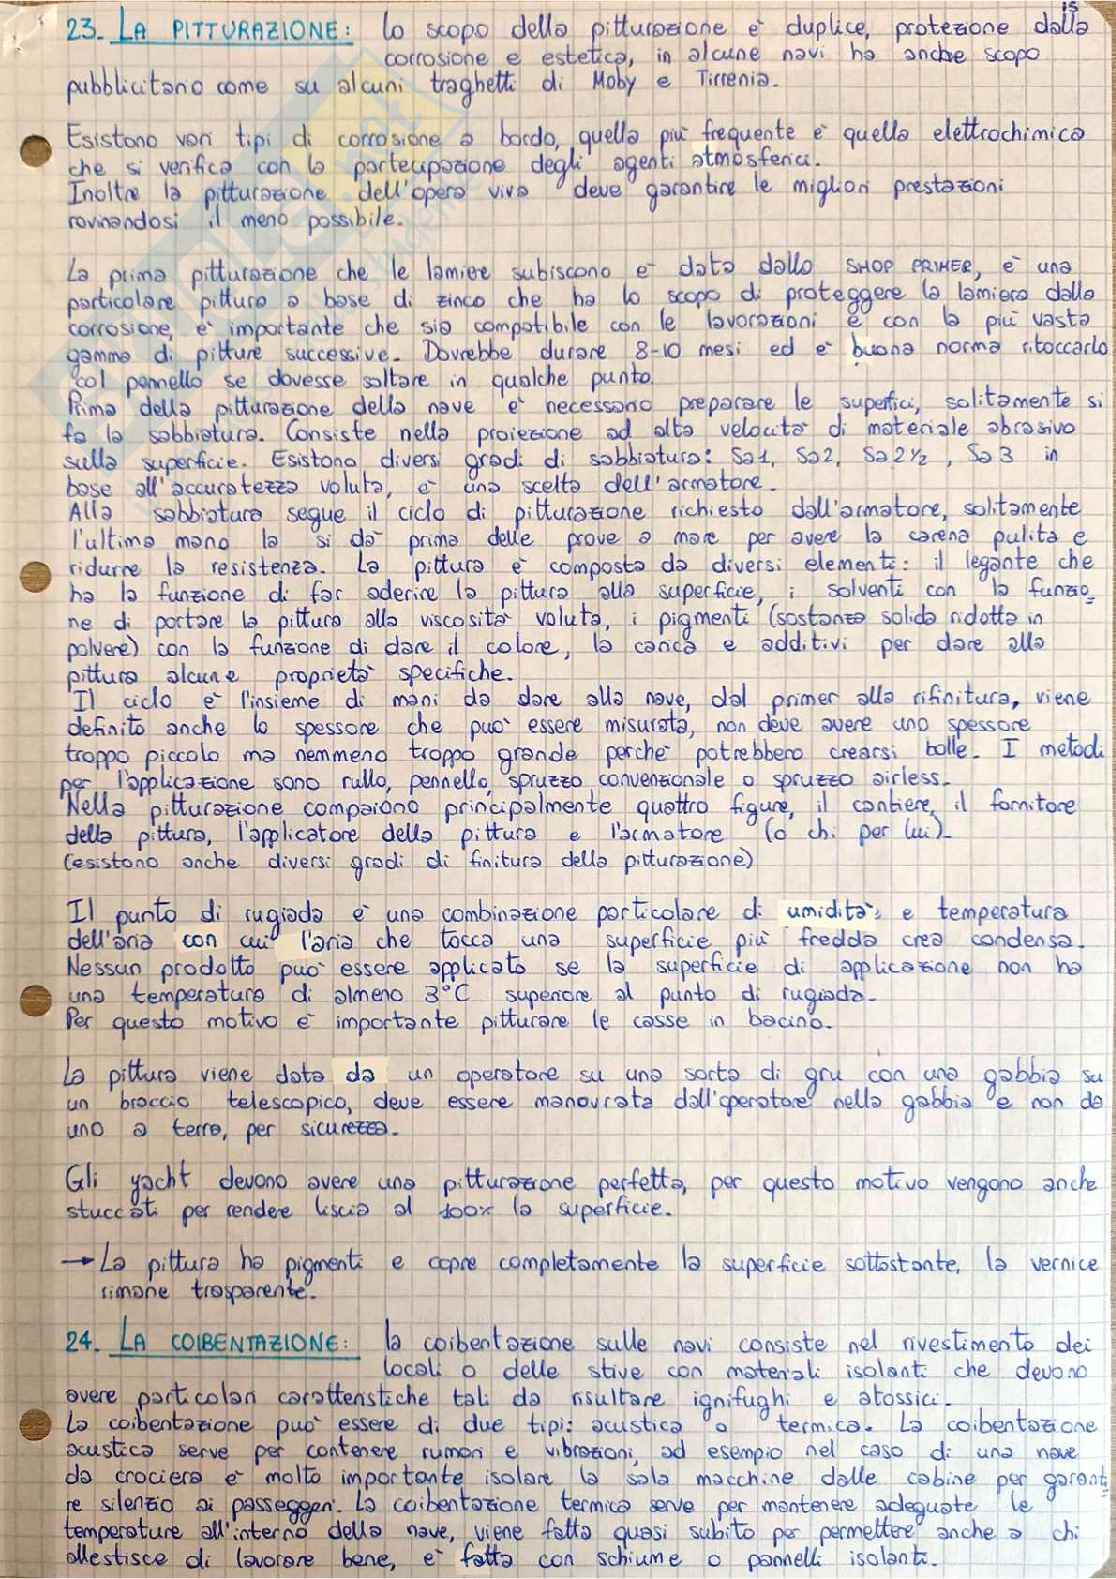 15
23. LA PITTURAZIONE: lo scopo della pitturazione è duplice, protezione dalla
corrosione e estetica, in alcune navi ha anche scopo
pubblicitario come su alcuni traghetti di Moby e Tirrenia.
Esistono vari tipi di corrosione a bordo, quella più frequente è quella elettrochimica
che si verifica con la partecipazione degli agenti atmosferici.
Inoltre la pitturazione dell'opera viva deve garantire le migliori prestazioni
rovinandosi il meno possibile.
La prima pitturazione che le lamiere subiscono è data dallo SHOP PRIMER, è una
particolare pittura a base di zinco che ha lo scopo di proteggere la lamiera dalla
corrosione, è importante che sia compatibile con le lavorazioni e con la più vasta
gamma di pitture successive. Dovrebbe durare 8-10 mesi ed è buona norma ritoccarlo
col pennello se dovesse saltare in qualche punto.
Prima della pitturazione della nave è necessario preparare le superfici, solitamente si
fa la sabbiatura. Consiste nella proiezione ad alta velocità di materiale abrasivo
sulla superficie. Esistono diversi gradi di sabbiatura: Sa1, Sa2, Sa2½, Sa3 in
base all'accuratezza voluta, è una scelta dell'armatore.
Alla sabbiatura segue il ciclo di pitturazione richiesto dall'armatore, solitamente
l'ultima mano la si dà prima delle prove a mare per avere la carena pulita e
ridurre la resistenza. La pittura è composta da diversi elementi: il legante che
ha la funzione di far aderire la pittura alla superficie, i solventi con la funzio_
ne di portare la pittura alla viscosità voluta, i pigmenti (sostanza solida ridotta in
polvere) con la funzione di dare il colore, la carica e additivi per dare alla
pittura alcune proprietà specifiche.
Il ciclo è l'insieme di mani da dare alla nave, dal primer alla rifinitura, viene
definito anche lo spessore che può essere misurato, non deve avere uno spessore
troppo piccolo ma nemmeno troppo grande perchè potrebbero crearsi bolle. I metodi
per l'applicazione sono rullo, pennello, spruzzo convenzionale o spruzzo airless.
Nella pitturazione compaiono principalmente quattro figure, il cantiere, il fornitore
della pittura, l'applicatore della pittura e l'armatore (o chi per lui).
(esistono anche diversi gradi di finitura della pitturazione)
Il punto di rugiada è una combinazione particolare di umidità e temperatura
dell'aria con cui l'aria che tocca una superficie più fredda crea condensa.
Nessun prodotto può essere applicato se la superficie di applicazione non ha
una temperatura di almeno 3°C superiore al punto di rugiada.
Per questo motivo è importante pitturare le casse in bacino.
La pittura viene data da un operatore su una sorta di gru con una gabbia su
un braccio telescopico, deve essere manovrata dall'operatore nella gabbia e non da
uno a terra, per sicurezza.
Gli yacht devono avere una pitturazione perfetta, per questo motivo vengono anche
stuccati per rendere liscia al 100% la superficie.
→ La pittura ha pigmenti e copre completamente la superficie sottostante, la vernice
rimane trasparente.
24. LA COIBENTAZIONE: la coibentazione sulle navi consiste nel rivestimento dei
locali o delle stive con materiali isolanti che devono
avere particolari caratteristiche tali da risultare ignifughi e atossici.
La coibentazione può essere di due tipi: acustica o termica. La coibentazione
acustica serve per contenere rumori e vibrazioni, ad esempio nel caso di una nave
da crociera è molto importante isolare la sala macchine dalle cabine per garanti
re silenzio ai passeggeri. La coibentazione termica serve per mantenere adeguate le
temperature all'interno della nave, viene fatta quasi subito per permettere anche a chi
allestisce di lavorare bene, è fatta con schiume o pannelli isolanti.